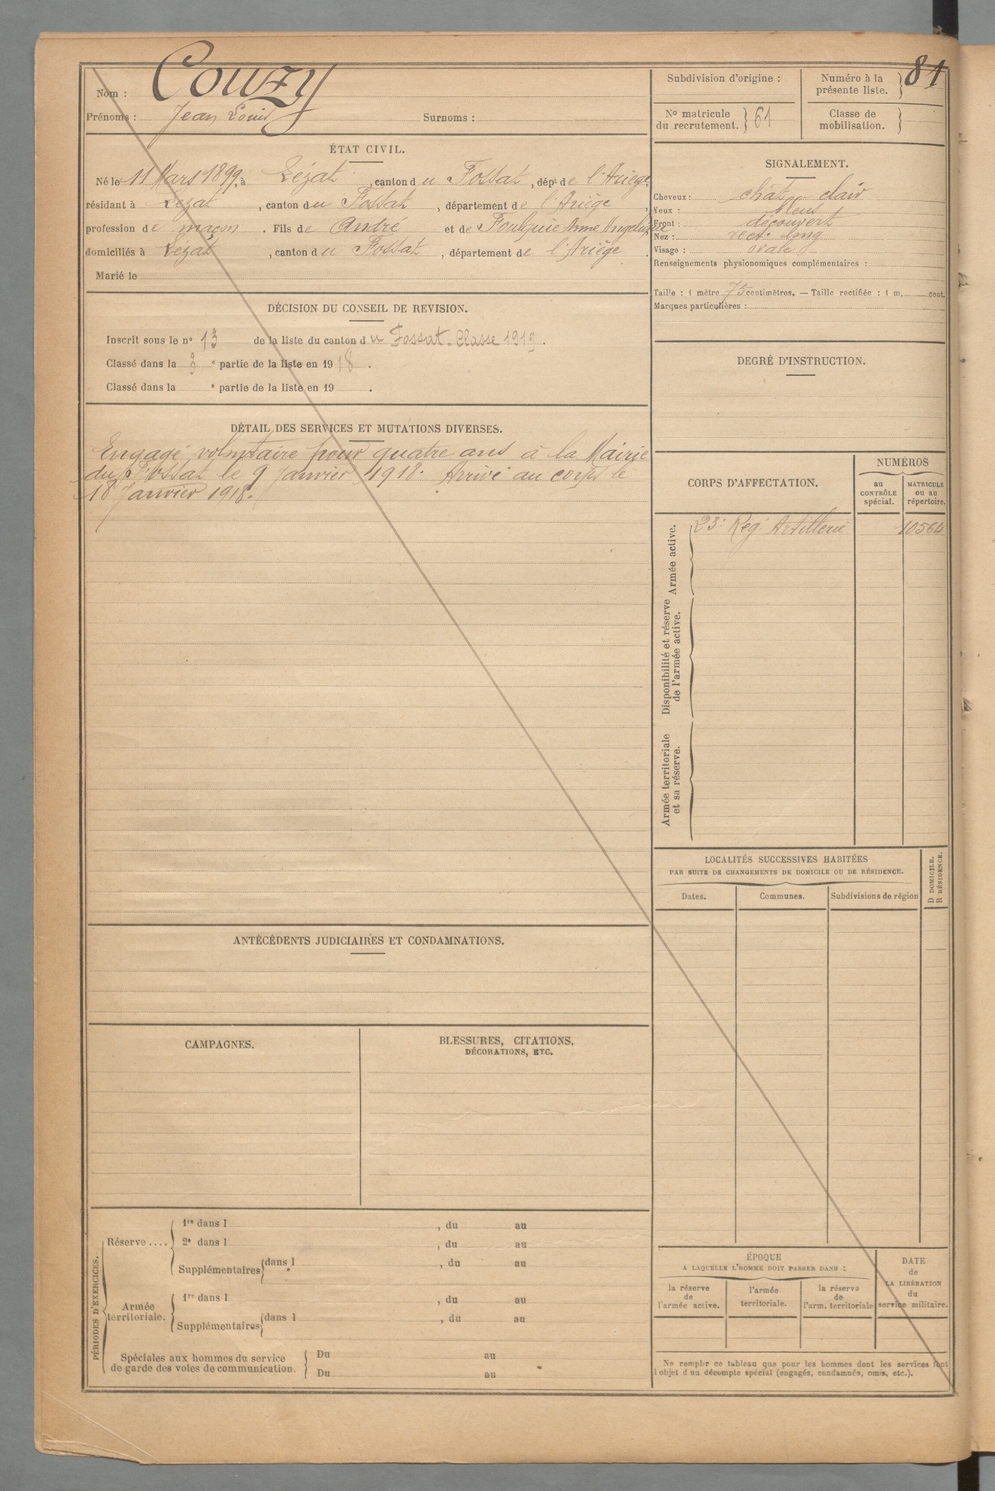 Nom : Couzy
Prénoms : Jean Louis Surnoms :
ÉTAT CIVIL.
Né le 11 Mars 1899, à Lézat, canton du Fossat, dépt de l'Ariège,
résidant à Lézat, canton du Fossat, département de l'Ariège
profession de maçon. Fils de André et de Foulquié Anne Angélique
domiciliés à Lézat, canton du Fossat, département de l'Ariège
Marié le
DÉCISION DU CONSEIL DE REVISION.
Inscrit sous le n° 13 de la liste du canton du Fossat. Classe 1919.
Classé dans la 3 e partie de la liste en 1918.
Classé dans la e partie de la liste en 19 .
DÉTAIL DES SERVICES ET MUTATIONS DIVERSES.
Engagé volontaire pour quatre ans à la Mairie
du Fossat le 9 Janvier 1918. Arrivé au corps le
18 Janvier 1918.
ANTÉCÉDENTS JUDICIAIRES ET CONDAMNATIONS.
CAMPAGNES.
BLESSURES, CITATIONS,
DÉCORATIONS, ETC.
PÉRIODES D'EXERCICES.
Réserve ....
1re dans l , du au
2e dans l , du au
Supplémentaires dans l , du au
Armée
territoriale.
1re dans l , du au
Supplémentaires dans l , du au
Spéciales aux hommes du service
de garde des voies de communication.
Du au
Du au
Subdivision d'origine :
Numéro à la
présente liste. 81
N° matricule
du recrutement. 61
Classe de
mobilisation.
SIGNALEMENT.
Cheveux : chat. clair
Yeux : bleus
Front : découvert
Nez : rect. long
Visage : ovale
Renseignements physionomiques complémentaires :
Taille : 1 mètre 75 centimètres. — Taille rectifiée : 1 m. cent.
Marques particulières :
DEGRÉ D'INSTRUCTION.
CORPS D'AFFECTATION.
NUMÉROS
au
CONTRÔLE
spécial.
MATRICULE
OU AU
répertoire.
Armée active.
23e Rég. Artillerie 10564
Disponibilité et réserve
de l'armée active.
Armée territoriale
et sa réserve.
LOCALITÉS SUCCESSIVES HABITÉES
PAR SUITE DE CHANGEMENTS DE DOMICILE OU DE RÉSIDENCE.
Dates. Communes. Subdivisions de région
D DOMICILE.
R RÉSIDENCE.
ÉPOQUE
A LAQUELLE L'HOMME DOIT PASSER DANS :
la réserve
de
l'armée active.
l'armée
territoriale.
la réserve
de
l'arm. territoriale
DATE
de
LA LIBÉRATION
du
service militaire.
Ne remplir ce tableau que pour les hommes dont les services font
l'objet d'un décompte spécial (engagés, condamnés, omis, etc.).